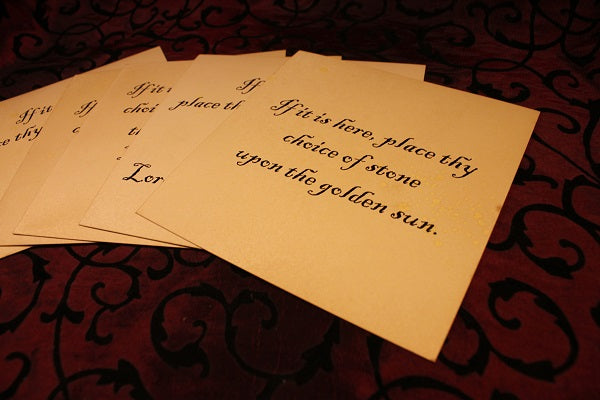 If it is here, place thy
choice of stone
upon the golden sun.
If
place th
If it
choi
t
Lor
If
If it
place thy